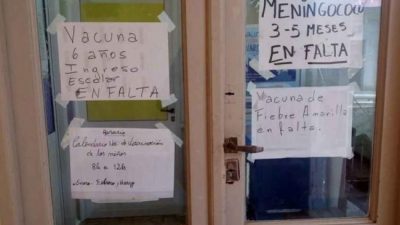 Vacuna
6 años
Ingreso
Escolar
EN FALTA
Horario
Calendario de Vacunación
de los niños
8h a 12h
Lunes
MENINGOCOCO
3-5 MESES
EN FALTA
Vacuna de
Fiebre Amarilla
en falta.